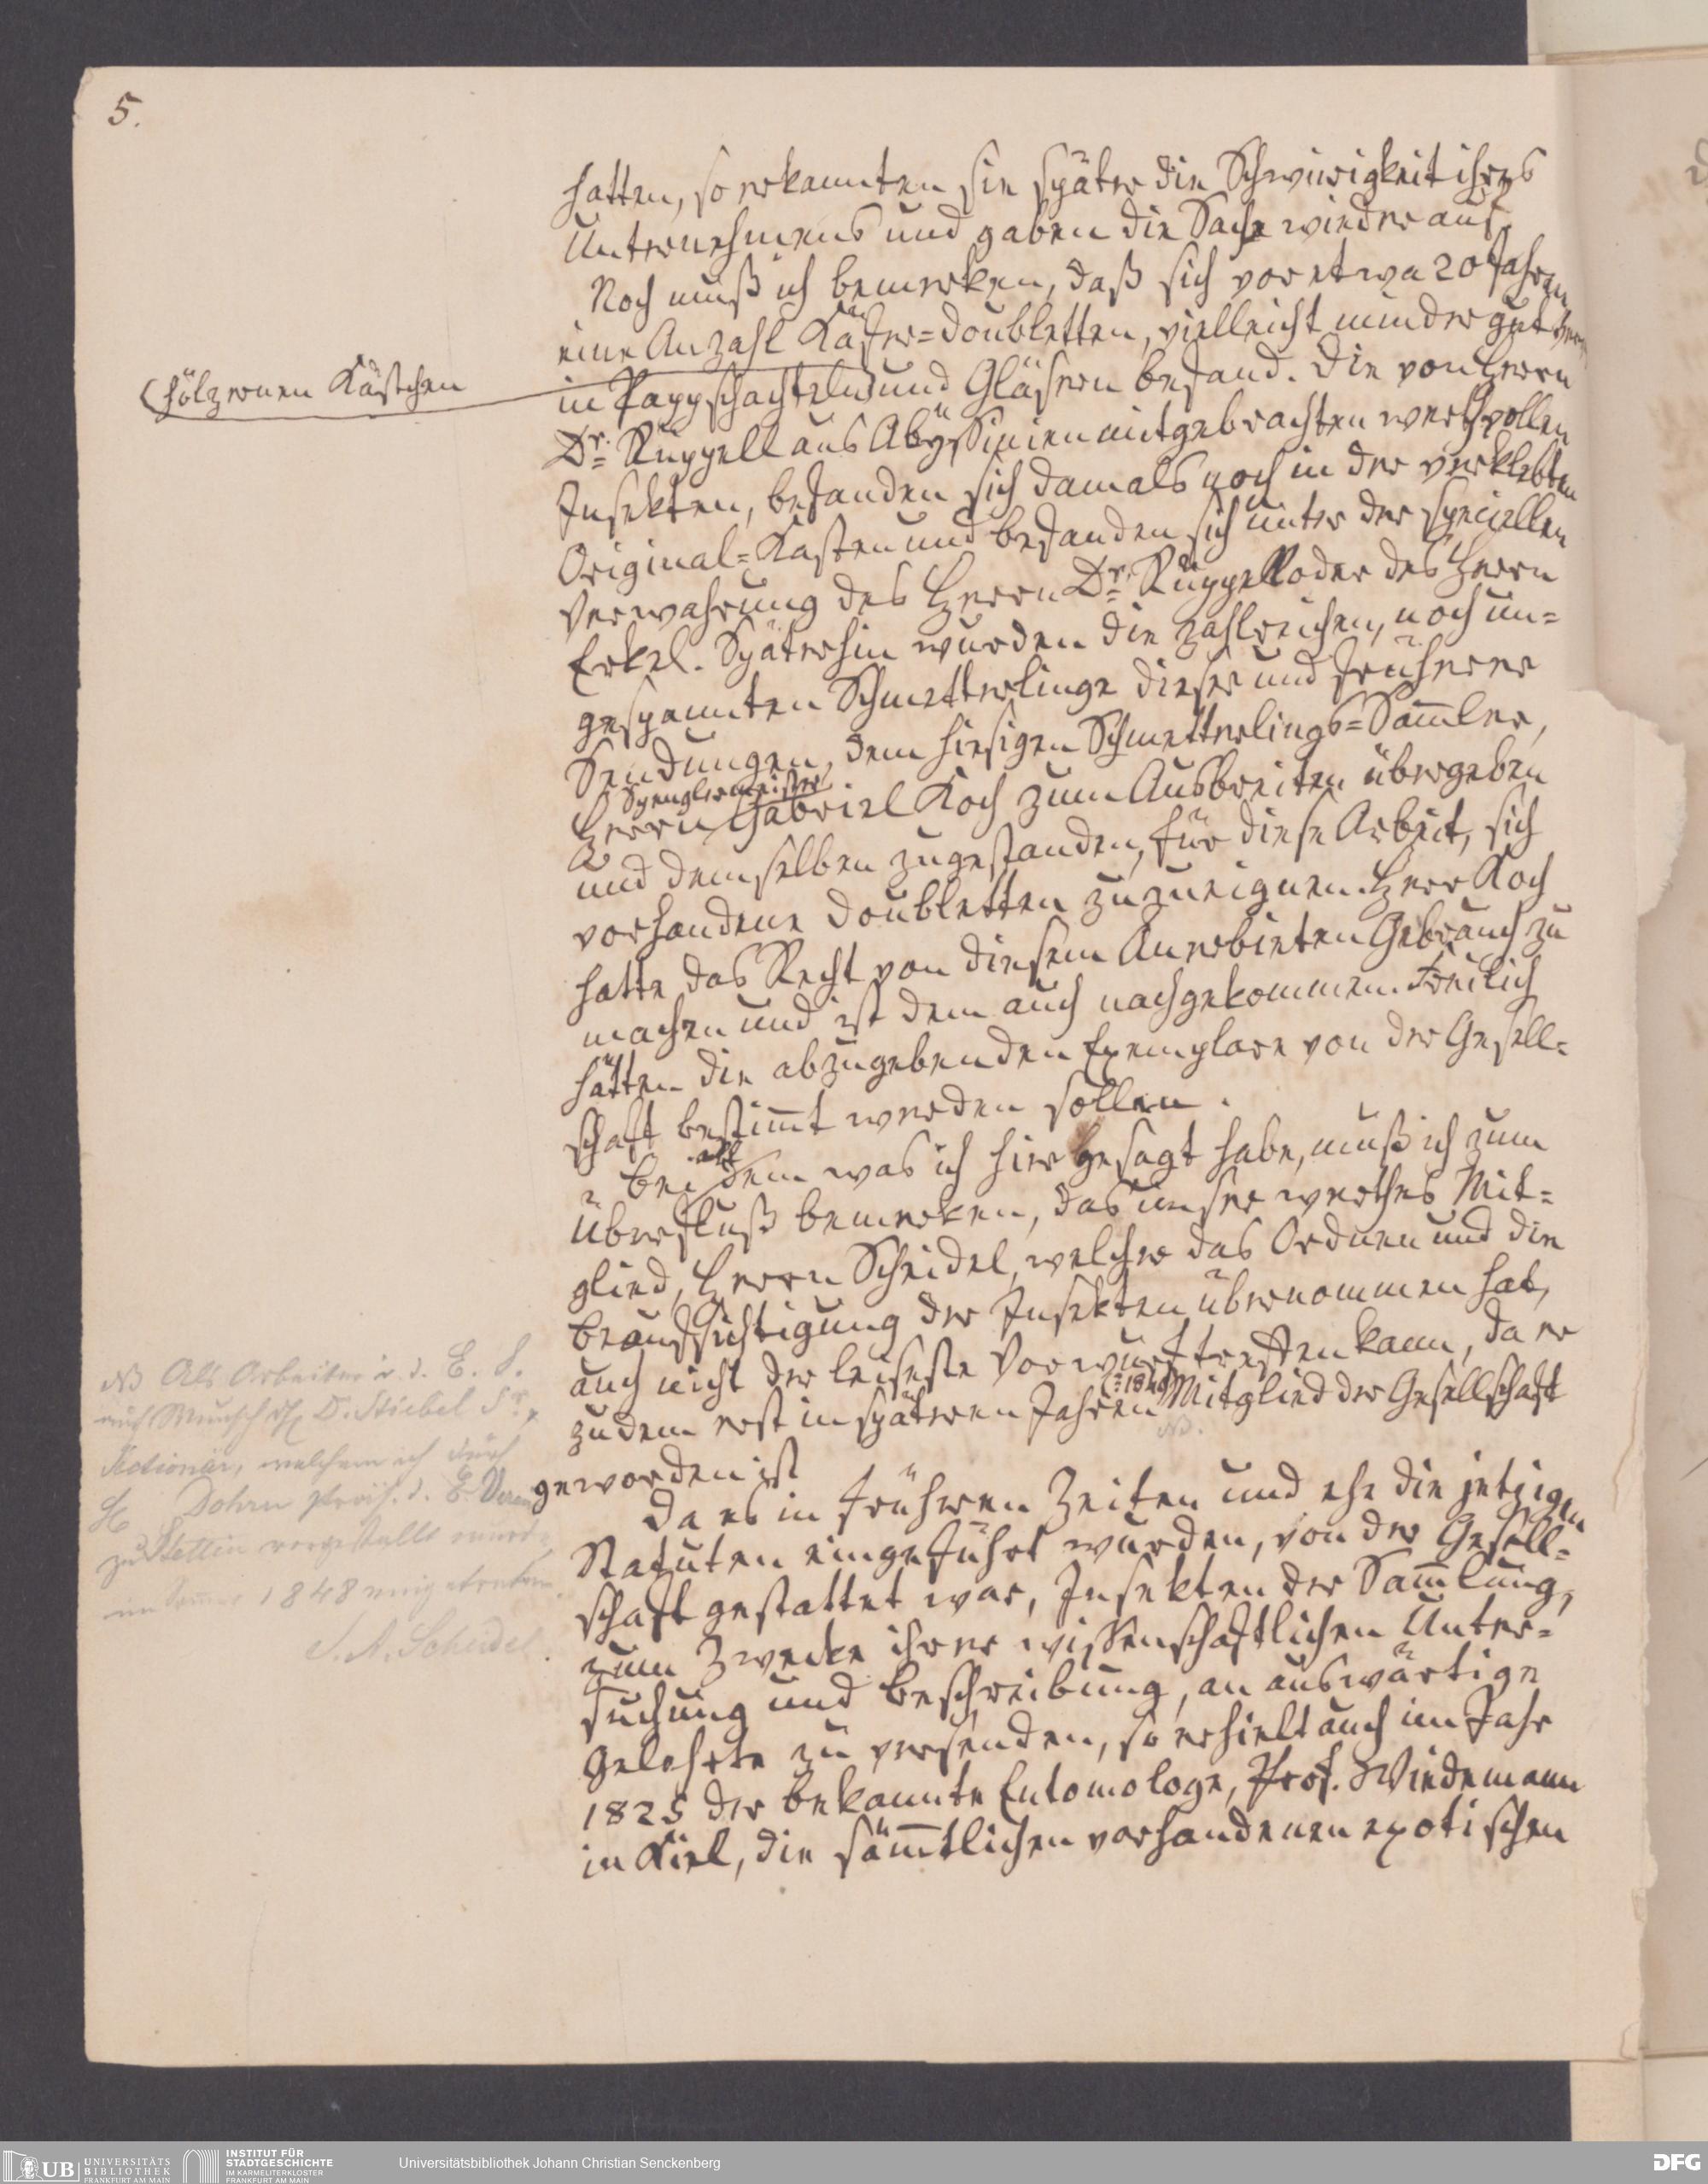 5.
hatten, so erkannten sie später die Schwierigkeit ihres
Unternehmens und gaben die Sache wieder auf.
Noch muß ich bemerken, daß sich vor etwa 20 Jahren
eine Anzahl Käfer=Doubletten, vielleicht minder gut
(hölzernen Kästchen
in Pappschachteln und Gläsern befand. Die von Herrn
Dr. Rüppell aus Abyssinien mitgebrachten werthvollen
Insekten, befanden sich damals noch in der verklebten
Original=Kasten und befanden sich unter der speciellen
Verwahrung des Herrn Dr. Rüppell oder des Herrn
Erkel. Späterhin wurden die zahlreichen, noch un=
gespannten Schmetterlinge dieser und früherer
Sendungen, dem hiesigen Schmetterlings=Sam̄ler,
Spenglermeister
Herrn Gabriel Koch zum Ausbreiten übergeben
und demselben zugestanden, für diese Arbeit, sich
vorhandene Doubletten zuzueignen. Herr Koch
hatte das Recht von diesem Anerbieten Gebrauch zu
machen und ist dem auch nachgekommen. Freilich
hätten die abzugebenden Exemplare von der Gesell=
schaft bestim̄t werden sollen.
all
Bei dem was ich hier gesagt habe, muß ich zum
Überfluß bemerken, das unser werthes Mit=
glied, Herrn Scheidel, welcher das Ordnen und die
Beaufsichtigung der Insekten übernommen hat,
auch nicht der leiseste Vorwurf treffen kann, da er
zudem erst in späteren Jahren Mitglied der Gesellschaft
NB.
geworden ist
NB Als Arbeiter i. d. E. S.
auf Wunsch D. Stiebel Sr.
welchem ich durch
H Dohrn Präs. d. E. Verein
zu Stettin vorgestellt wurde
im 1848 eingetreten
S. A. Scheidel.
Da es in früheren Zeiten und ehe die jetzigen
Statuten eingeführt wurden, von der Gesell=
schaft gestattet war, Insekten der Sam̄lung,
zum Zwecke ihrer wissenschaftlichen Unter=
suchung und Beschreibung, an auswärtige
Gelehrte zu versenden, so erhielt auch im Jahr
1825 der bekannte Entomologe, Prof. Wiedemann
in Kiel, die säm̄tlichen vorhandenen exotischen
UB UNIVERSITÄTS
BIBLIOTHEK
FRANKFURT AM MAIN
INSTITUT FÜR
STADTGESCHICHTE
IM KARMELITERKLOSTER
FRANKFURT AM MAIN
Universitätsbibliothek Johann Christian Senckenberg
DFG